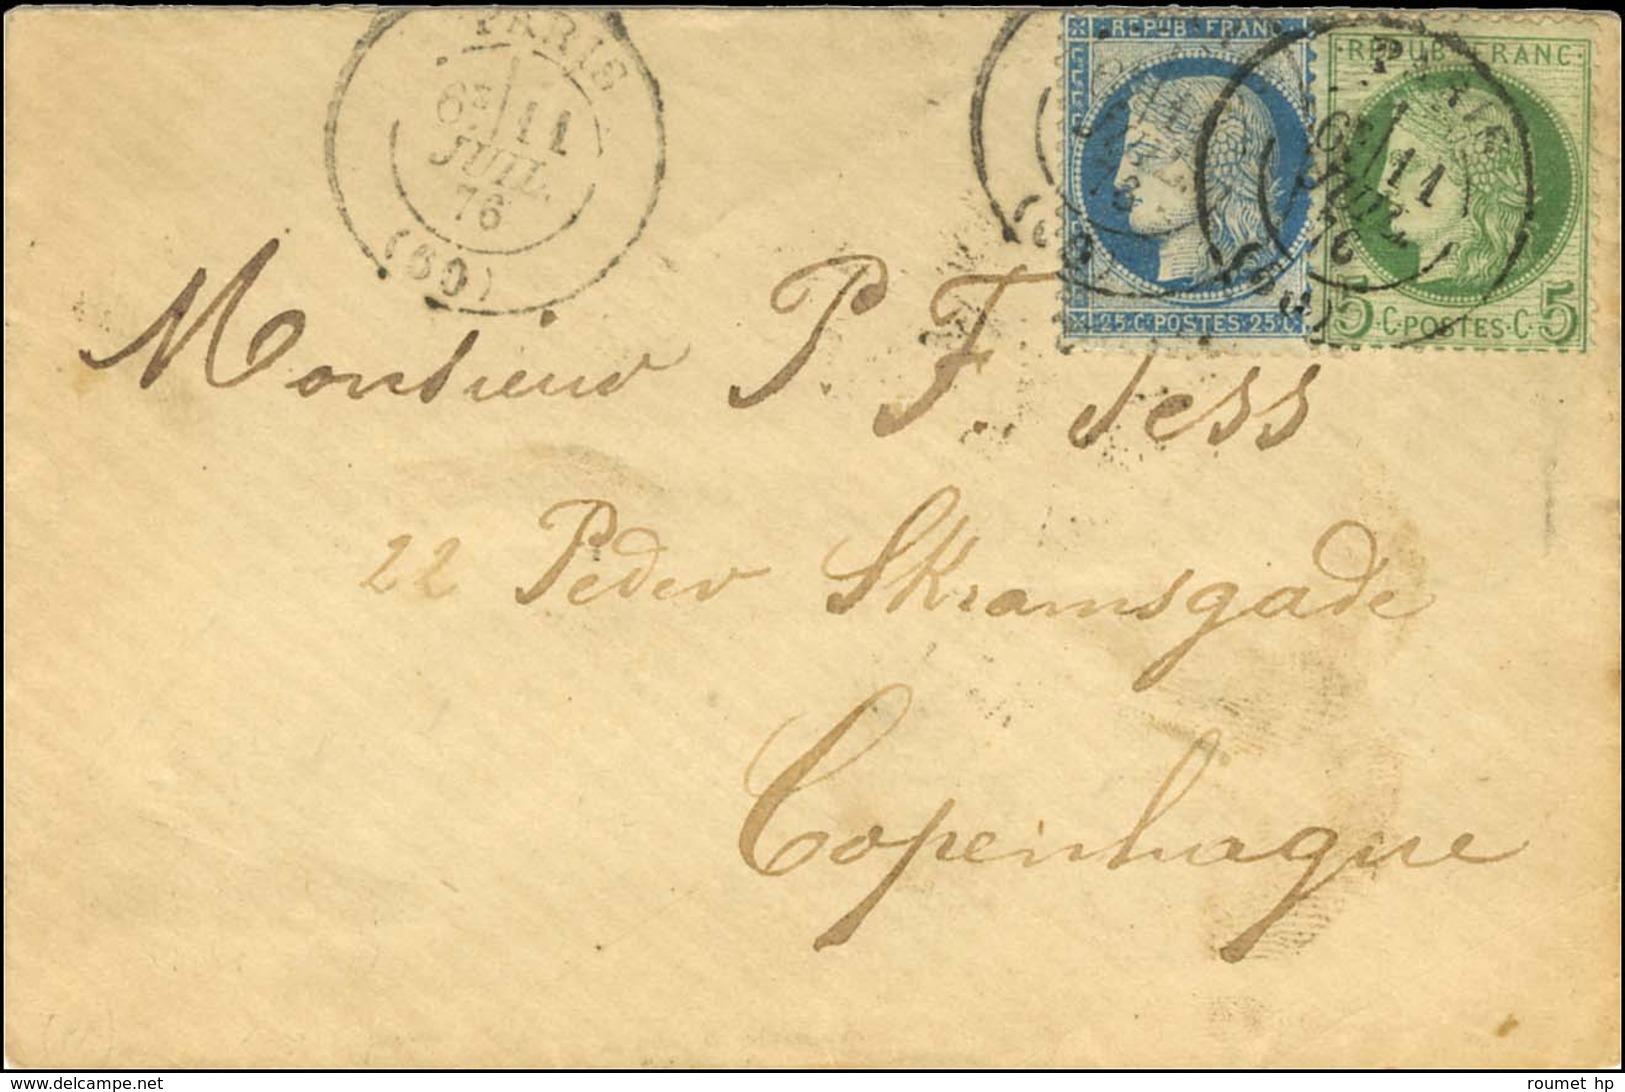 PARIS
6E 11
JUIL.
76
(60)
REPUB FRANC
25 C POSTES 25 C
REPUB FRANC
5 C POSTES C 5
PARIS
6E 11
JUIL.
76
Monsieur P. F. Jess
22 Peder Skramsgade
Copenhague
www.delcampe.net
roumet hp